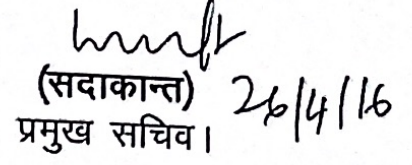 (सदाकान्त) 26/4/16
प्रमुख सचिव।